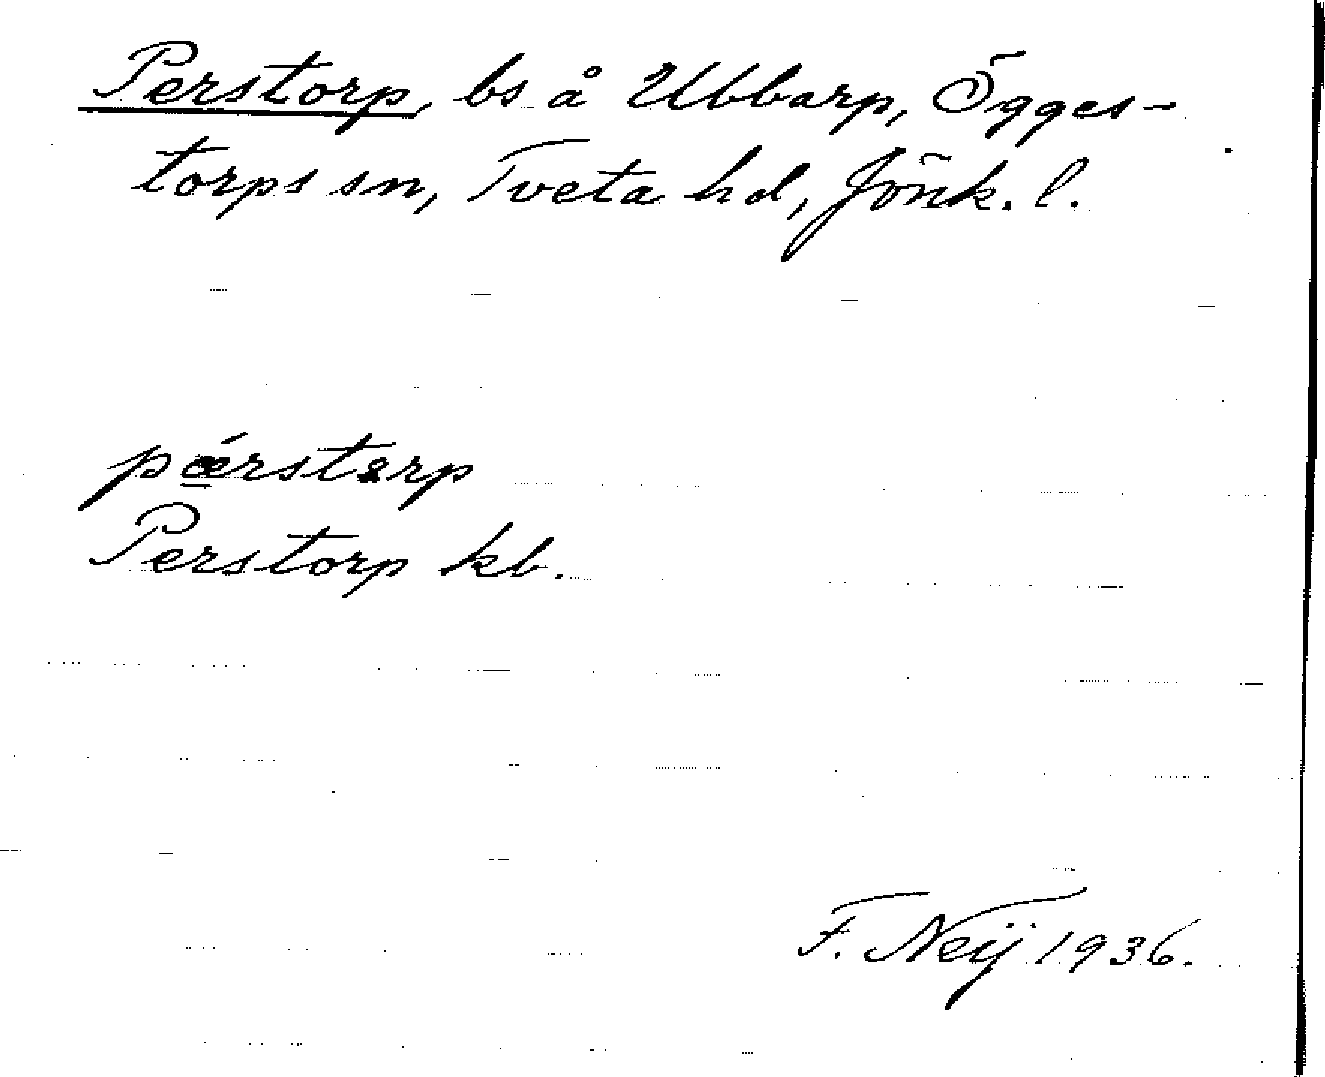 Perstorp, bs å Ubbarp, Ögges-
torps sn, Tveta hd, Jönk. l.
pǽrstərp
Perstorp kb.
F. Neij 1936.